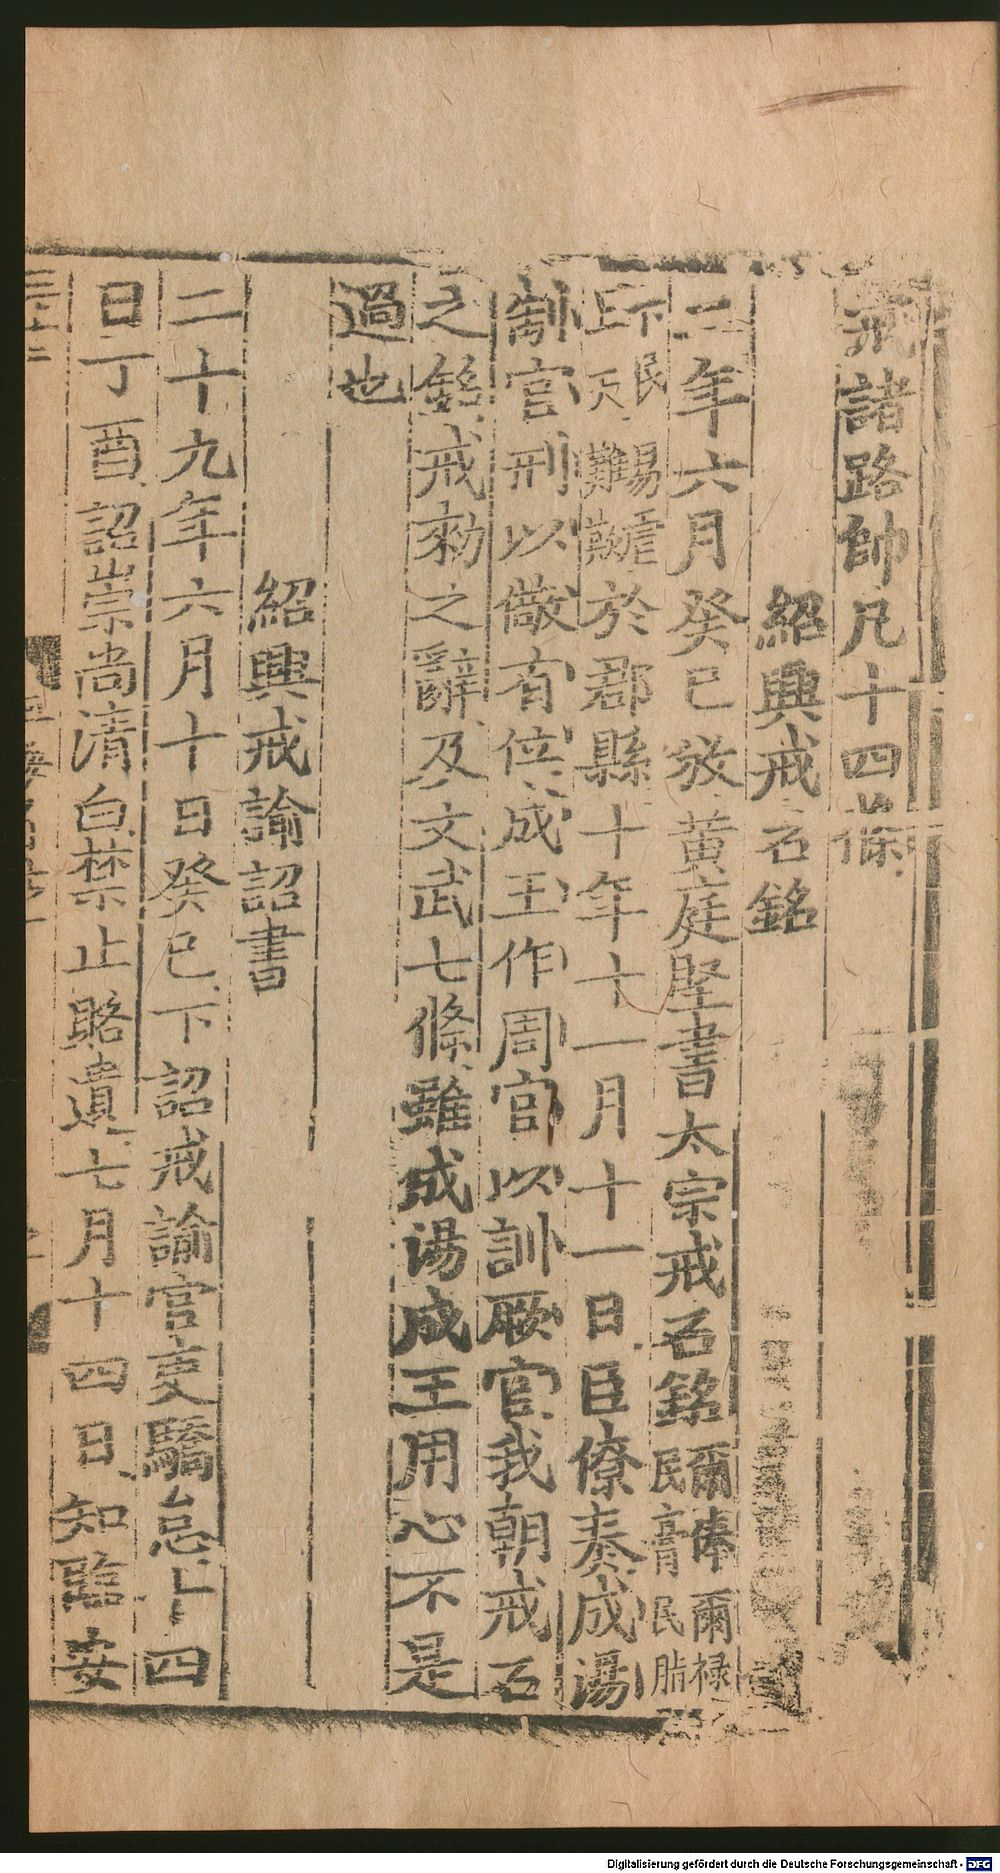 示諸路帥凡十四條
紹興戒石銘
二年六月癸巳效黃庭堅書太宗戒石銘爾俸爾祿民膏民脂
下民易虐上天難欺於郡縣十年十一月十一日臣僚奏成湯
制官刑以儆有位成王作周官以訓厥官我朝戒石
之銘戒勑之辭及文武七條雖成湯成王用心不是
過也
紹興戒諭詔書
二十九年六月十日癸巳下詔戒諭官吏驕怠十四
日丁酉詔崇尚清白禁止賂遺七月十四日知臨安
Digitalisierung gefördert durch die Deutsche Forschungsgemeinschaft - DFG